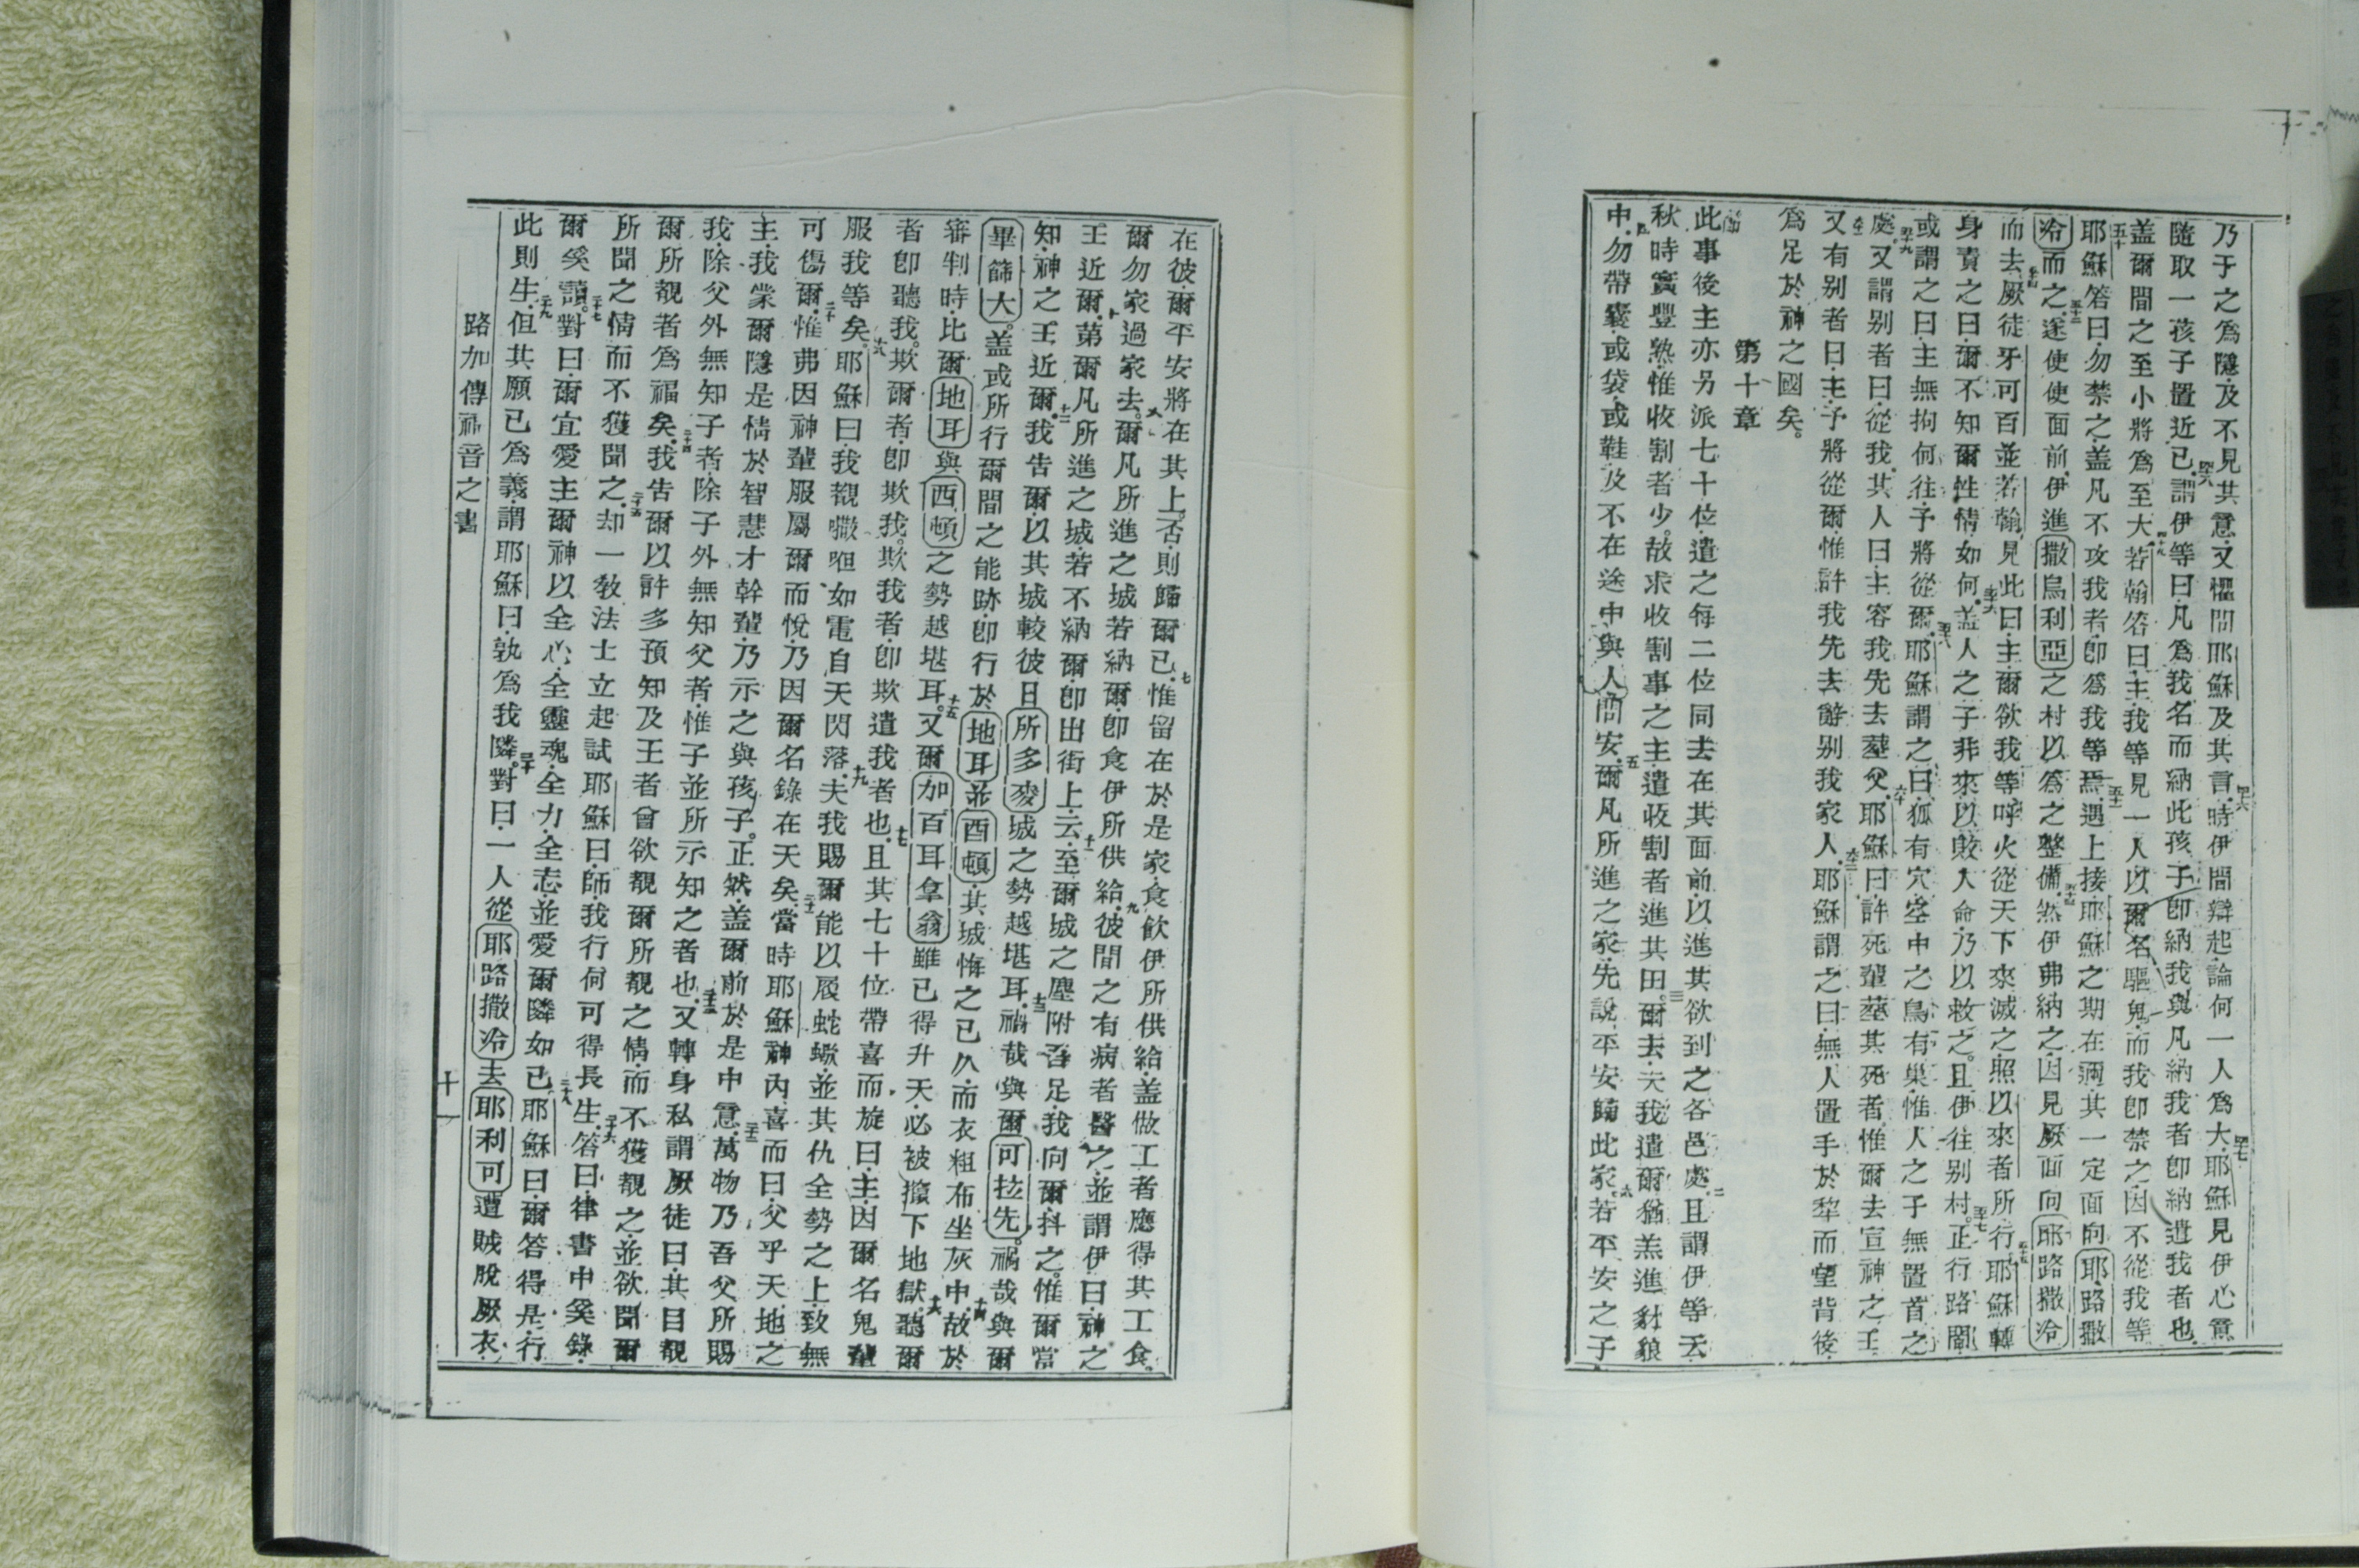 乃于之爲隱及不見其意又懼問耶穌及其言時伊間辯起論何一人爲大耶穌見伊心意
隨取一孩子置近已謂伊等曰凡爲我名而納此孩子卽納我與凡納我者卽納遣我者也
盖爾間之至小將爲至大若翰答曰主我等見一人以爾名驅鬼而我卽禁之因不從我等
耶穌答曰勿禁之盖凡不攻我者卽爲我等焉遇上接耶穌之期在邇其一定面向耶路撒
冾而之遂使使面前伊進撒烏利亞之村以爲之整備然伊弗納之因見厥面向耶路撒冾
而去厥徒牙可百並若翰見此曰主爾欲我等呼火從天下來滅之照以來者所行耶穌轉
身責之曰爾不知爾性情如何盖人之子非來以敗人命乃以救之且伊往别村正行路間
或謂之曰主無拘何往予將從爾耶穌謂之曰狐有穴空中之鳥有巢惟人之子無置首之
處又謂别者曰從我其人曰主容我先去塟父耶穌曰許死輩塟其死者惟爾去宣神之王
又有别者曰主予將從爾惟許我先去辭别我家人耶穌謂之曰無人置手於犂而望背後
爲足於神之國矣
第十章
此事後主亦另派七十位遣之每二位同去在其面前以進其欲到之各邑處且謂伊等云
秋時實豐熟惟收割者少故求收割事之主遣收割者進其田爾去夫我遣爾猶羔進豺狼
中勿帶囊或袋或鞋及不在途中與人問安爾凡所進之家先說平安歸此家若平安之子
在彼爾平安將在其上否則歸爾已惟留在於是家食飲伊所供給盖做工者應得其工食
爾勿家過家去爾凡所進之城若納爾卽食伊所供給彼間之有病者醫之並謂伊曰神之
王近爾第爾凡所進之城若不納爾卽出街上云至爾城之塵附吾足我向爾抖之惟爾當
知神之王近爾我告爾以其城較彼日所多麥城之勢越堪耳禍哉與爾可拉先禍哉與爾
畢篩大盖或所行爾間之能跡卽行於地耳並西頓其城悔之已久而衣粗布坐灰中故於
審判時比爾地耳與西頓之勢越堪耳又爾加百耳拿翁雖已得升天必被擯下地獄聽爾
者卽聽我欺爾者卽欺我欺我者卽欺遣我者也且其七十位帶喜而旋曰主因爾名鬼輩
服我等矣耶穌曰我覩㘔呾如電自天閃落夫我賜爾能以履蛇蠍並其仇全勢之上致無
可傷爾惟弗因神輩服屬爾而悅乃因爾名錄在天矣當時耶穌神內喜而曰父乎天地之
主我棠爾隱是情於智慧才幹輩乃示之與孩子正然盖爾前於是中意萬物乃吾父所賜
我除父外無知子者除子外無知父者惟子並所示知之者也又轉身私謂厥徒曰其目覩
爾所覩者爲福矣我告爾以許多預知及王者曾欲覩爾所覩之情而不獲覩之並欲聞爾
所聞之情而不獲聞之却一敎法士立起試耶穌曰師我行何可得長生答曰律書中奚錄
爾奚讀對曰爾宜愛主爾神以全心全靈魂全力全志並愛爾隣如已耶穌曰爾答得是行
此則生但其願已爲義謂耶穌曰孰爲我隣對曰一人從耶路撒冾去耶利可遭賊脫厥衣
路加傳福音之書
十一